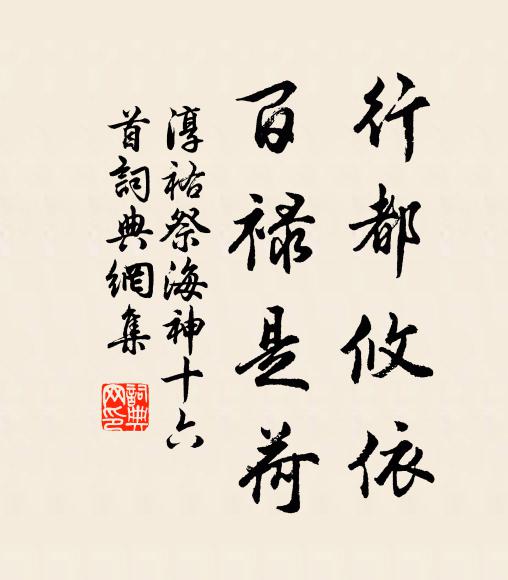 行都攸依
百祿是荷
淳祐祭海神十六
首詞典網集
詞典
网印